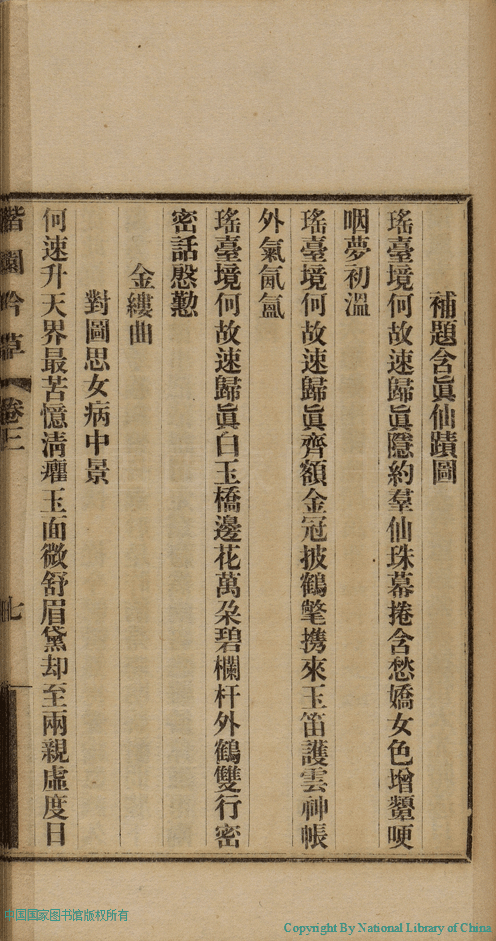 補題含眞仙蹟圖
瑤臺境何故速歸眞隱約羣仙珠幕捲含愁嬌女色增顰哽
咽夢初溫
瑤臺境何故速歸眞齊額金冠披鶴氅携來玉笛護雲神帳
外氣氤氳
瑤臺境何故速歸眞白玉橋邊花萬朶碧欄杆外鶴雙行密
密話慇懃
金縷曲
對圖思女病中景
何速升天界最苦憶淸癯玉面微舒眉黛却至兩親虛度日
楷園吟草
卷三
七
中国国家图书馆版权所有
Copyright By National Library of China